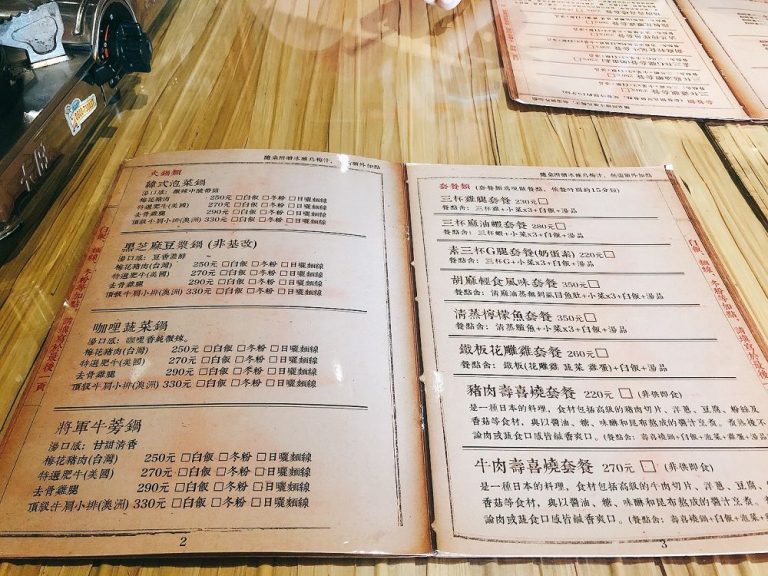 火鍋類
韓式泡菜鍋
湯口感: 微辣中帶香甜
梅花豬肉 250元 □白飯 □冬粉 □日曬麵線
特選肥牛(美國) 270元 □白飯 □冬粉 □日曬麵線
去骨雞腿 290元 □白飯 □冬粉 □日曬麵線
頂級牛肩小排(澳洲) 330元 □白飯 □冬粉 □日曬麵線
黑芝麻豆漿鍋 (非基改)
湯口感: 豆香濃醇
梅花豬肉(台灣) 250元 □白飯 □冬粉 □日曬麵線
特選肥牛(美國) 270元 □白飯 □冬粉 □日曬麵線
去骨雞腿 290元 □白飯 □冬粉 □日曬麵線
頂級牛肩小排(澳洲) 330元 □白飯 □冬粉 □日曬麵線
咖哩蔬菜鍋
湯口感: 咖哩香純微辣。
梅花豬肉(台灣) 250元 □白飯 □冬粉 □日曬麵線
特選肥牛(美國) 270元 □白飯 □冬粉 □日曬麵線
去骨雞腿 290元 □白飯 □冬粉 □日曬麵線
頂級牛肩小排(澳洲) 330元 □白飯 □冬粉 □日曬麵線
將軍牛蒡鍋
湯口感: 甘甜清香
梅花豬肉(台灣) 250元 □白飯 □冬粉 □日曬麵線
特選肥牛(美國) 270元 □白飯 □冬粉 □日曬麵線
去骨雞腿 290元 □白飯 □冬粉 □日曬麵線
頂級牛肩小排(澳洲) 330元 □白飯 □冬粉 □日曬麵線
2
套餐類 (套餐類為現做餐點, 候餐時間約15分鐘)
三杯雞腿套餐 230元□
餐點含: 三杯雞+小菜x3+白飯+湯品
三杯麻油蝦套餐 280元□
餐點含: 三杯蝦+小菜x3+白飯+湯品
素三杯G腿套餐(奶蛋素) 220元□
餐點含: 三杯G+小菜x3+白飯+湯品
胡麻輕食風味套餐 350元□
清蒸檸檬魚套餐 350元□
餐點含: 清蒸鱸魚+小菜x3+白飯+湯品
鐵板花雕雞套餐 260元□
餐點含: 鐵板(花雕雞 蔬菜 雞蛋)+白飯+湯品
豬肉壽喜燒套餐 220元□ (非供即食)
是一種日本的料理, 食材包括高級的豬肉切片、洋蔥、豆腐、粉絲及
香菇等食材, 與以醬油、糖、味醂和昆布熬成的醬汁烹煮。煮熟後不
論肉或蔬食口感皆鹹香爽口。(餐點含: 壽喜燒鍋+白飯+泡菜+蔥蛋+湯
牛肉壽喜燒套餐 270元□ (非供即食)
是一種日本的料理, 食材包括高級的牛肉切片、洋蔥、豆腐、
香菇等食材, 與以醬油、糖、味醂和昆布熬成的醬汁烹煮。
論肉或蔬食口感皆鹹香爽口。(餐點含: 壽喜燒鍋+白飯+泡菜+
3